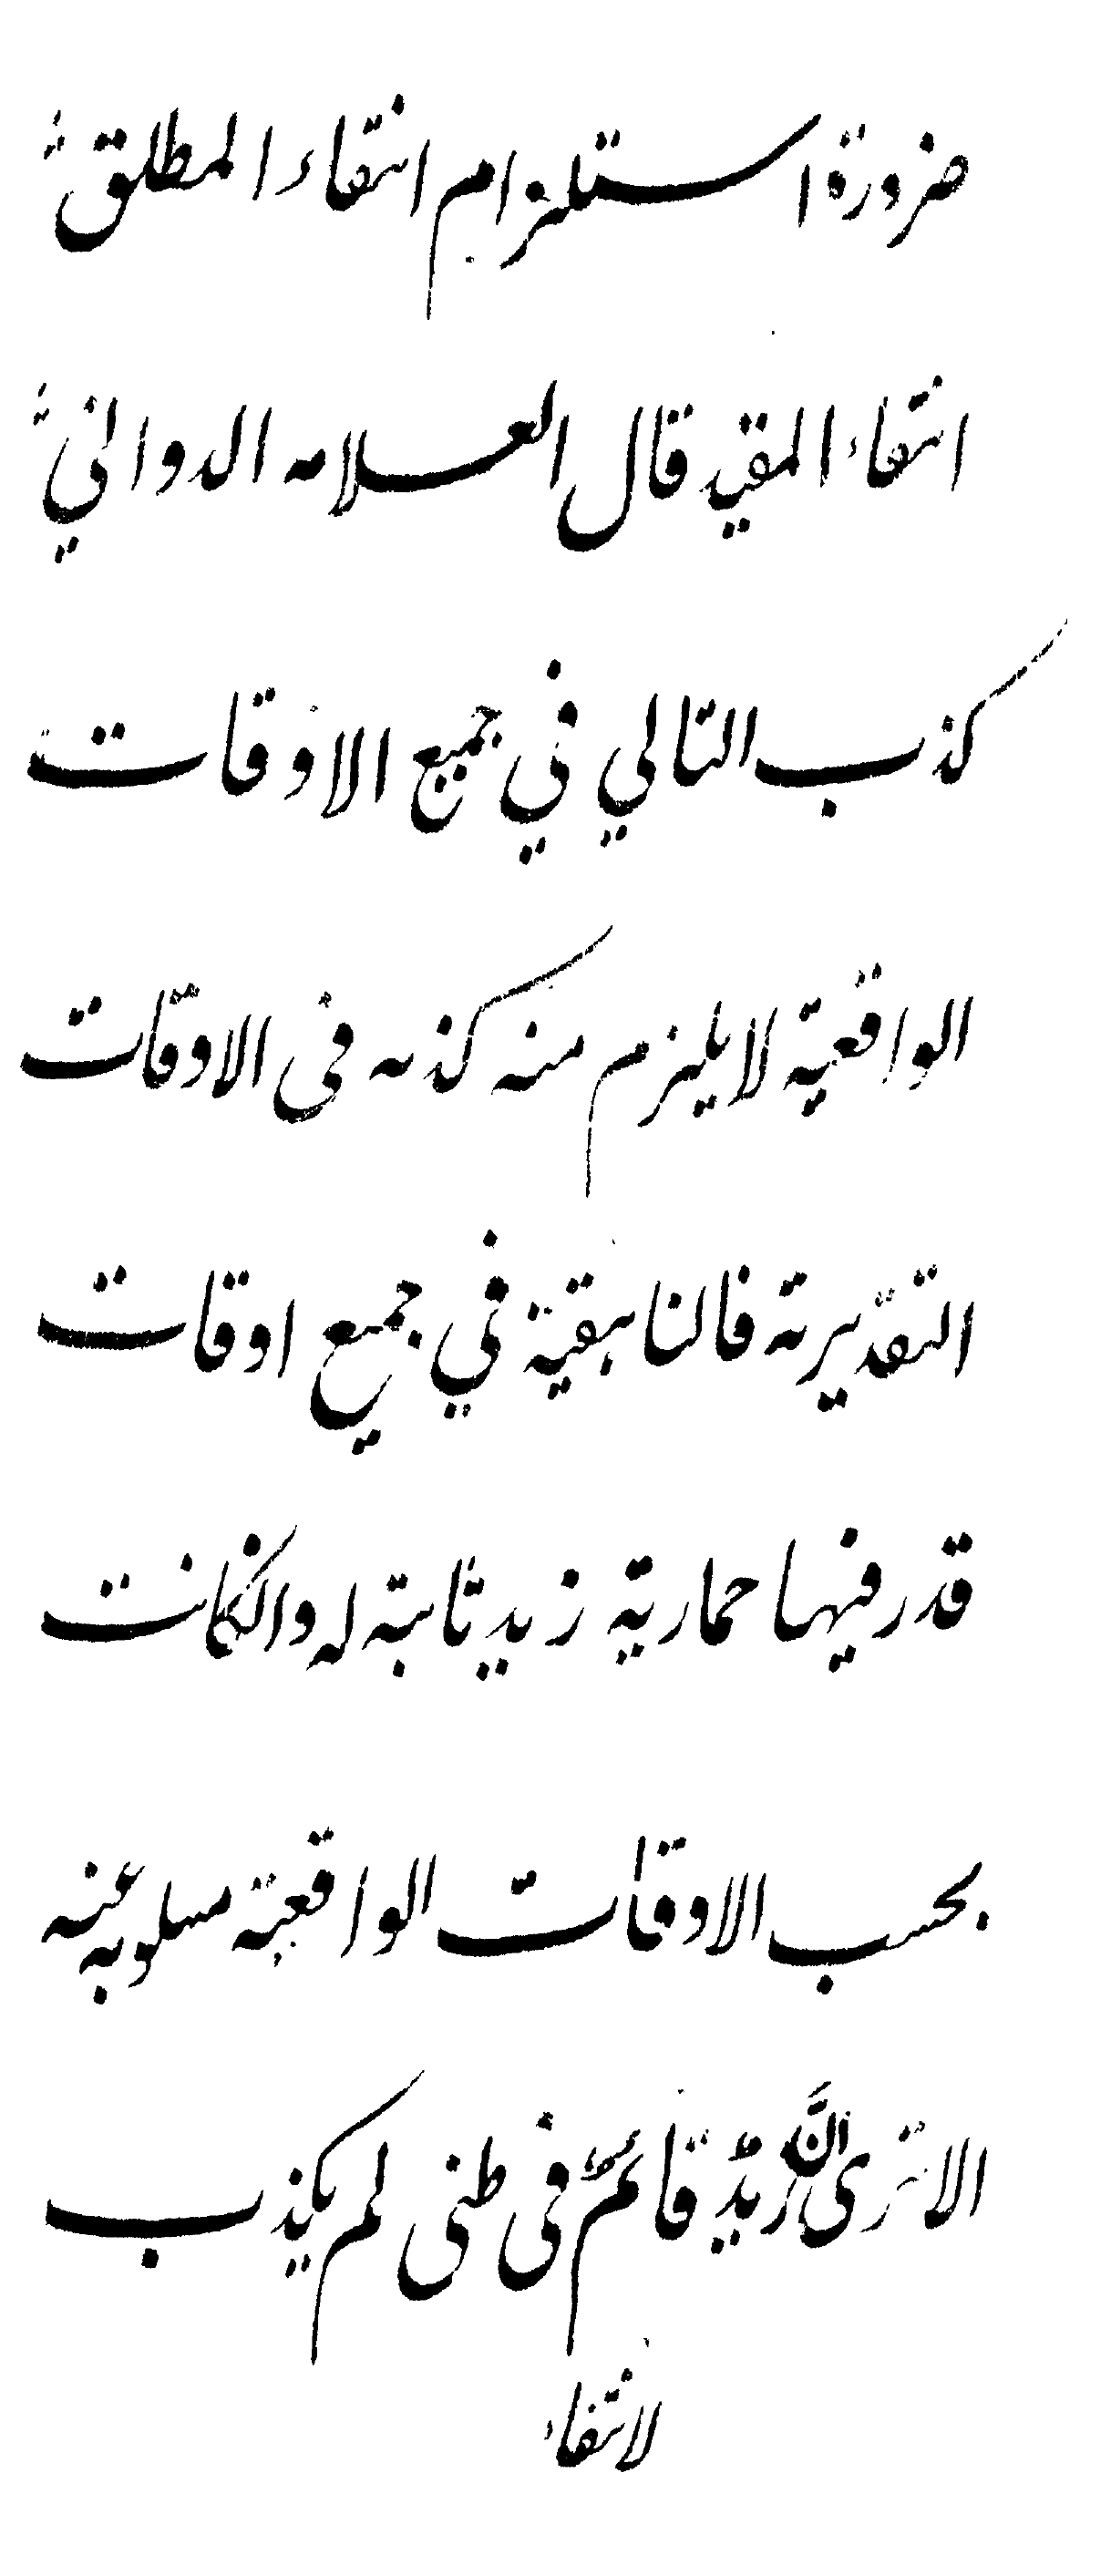 ضرورة استلزام انتفاء المطلق
انتفاء المقيد قال العلامه الدواني
كذب التالي في جميع الاوقات
الواقعية لا يلزم منه كذبه فى الاوقات
التقديرية فالناهقية في جميع اوقات
قدر فيها حمارية زيد ثابتة له والكانت
بحسب الاوقات الواقعية مسلوبه عنه
الا ترى انَّ زيدٌ قائمٌ فى ظنى لم يكذب
لانتفاء